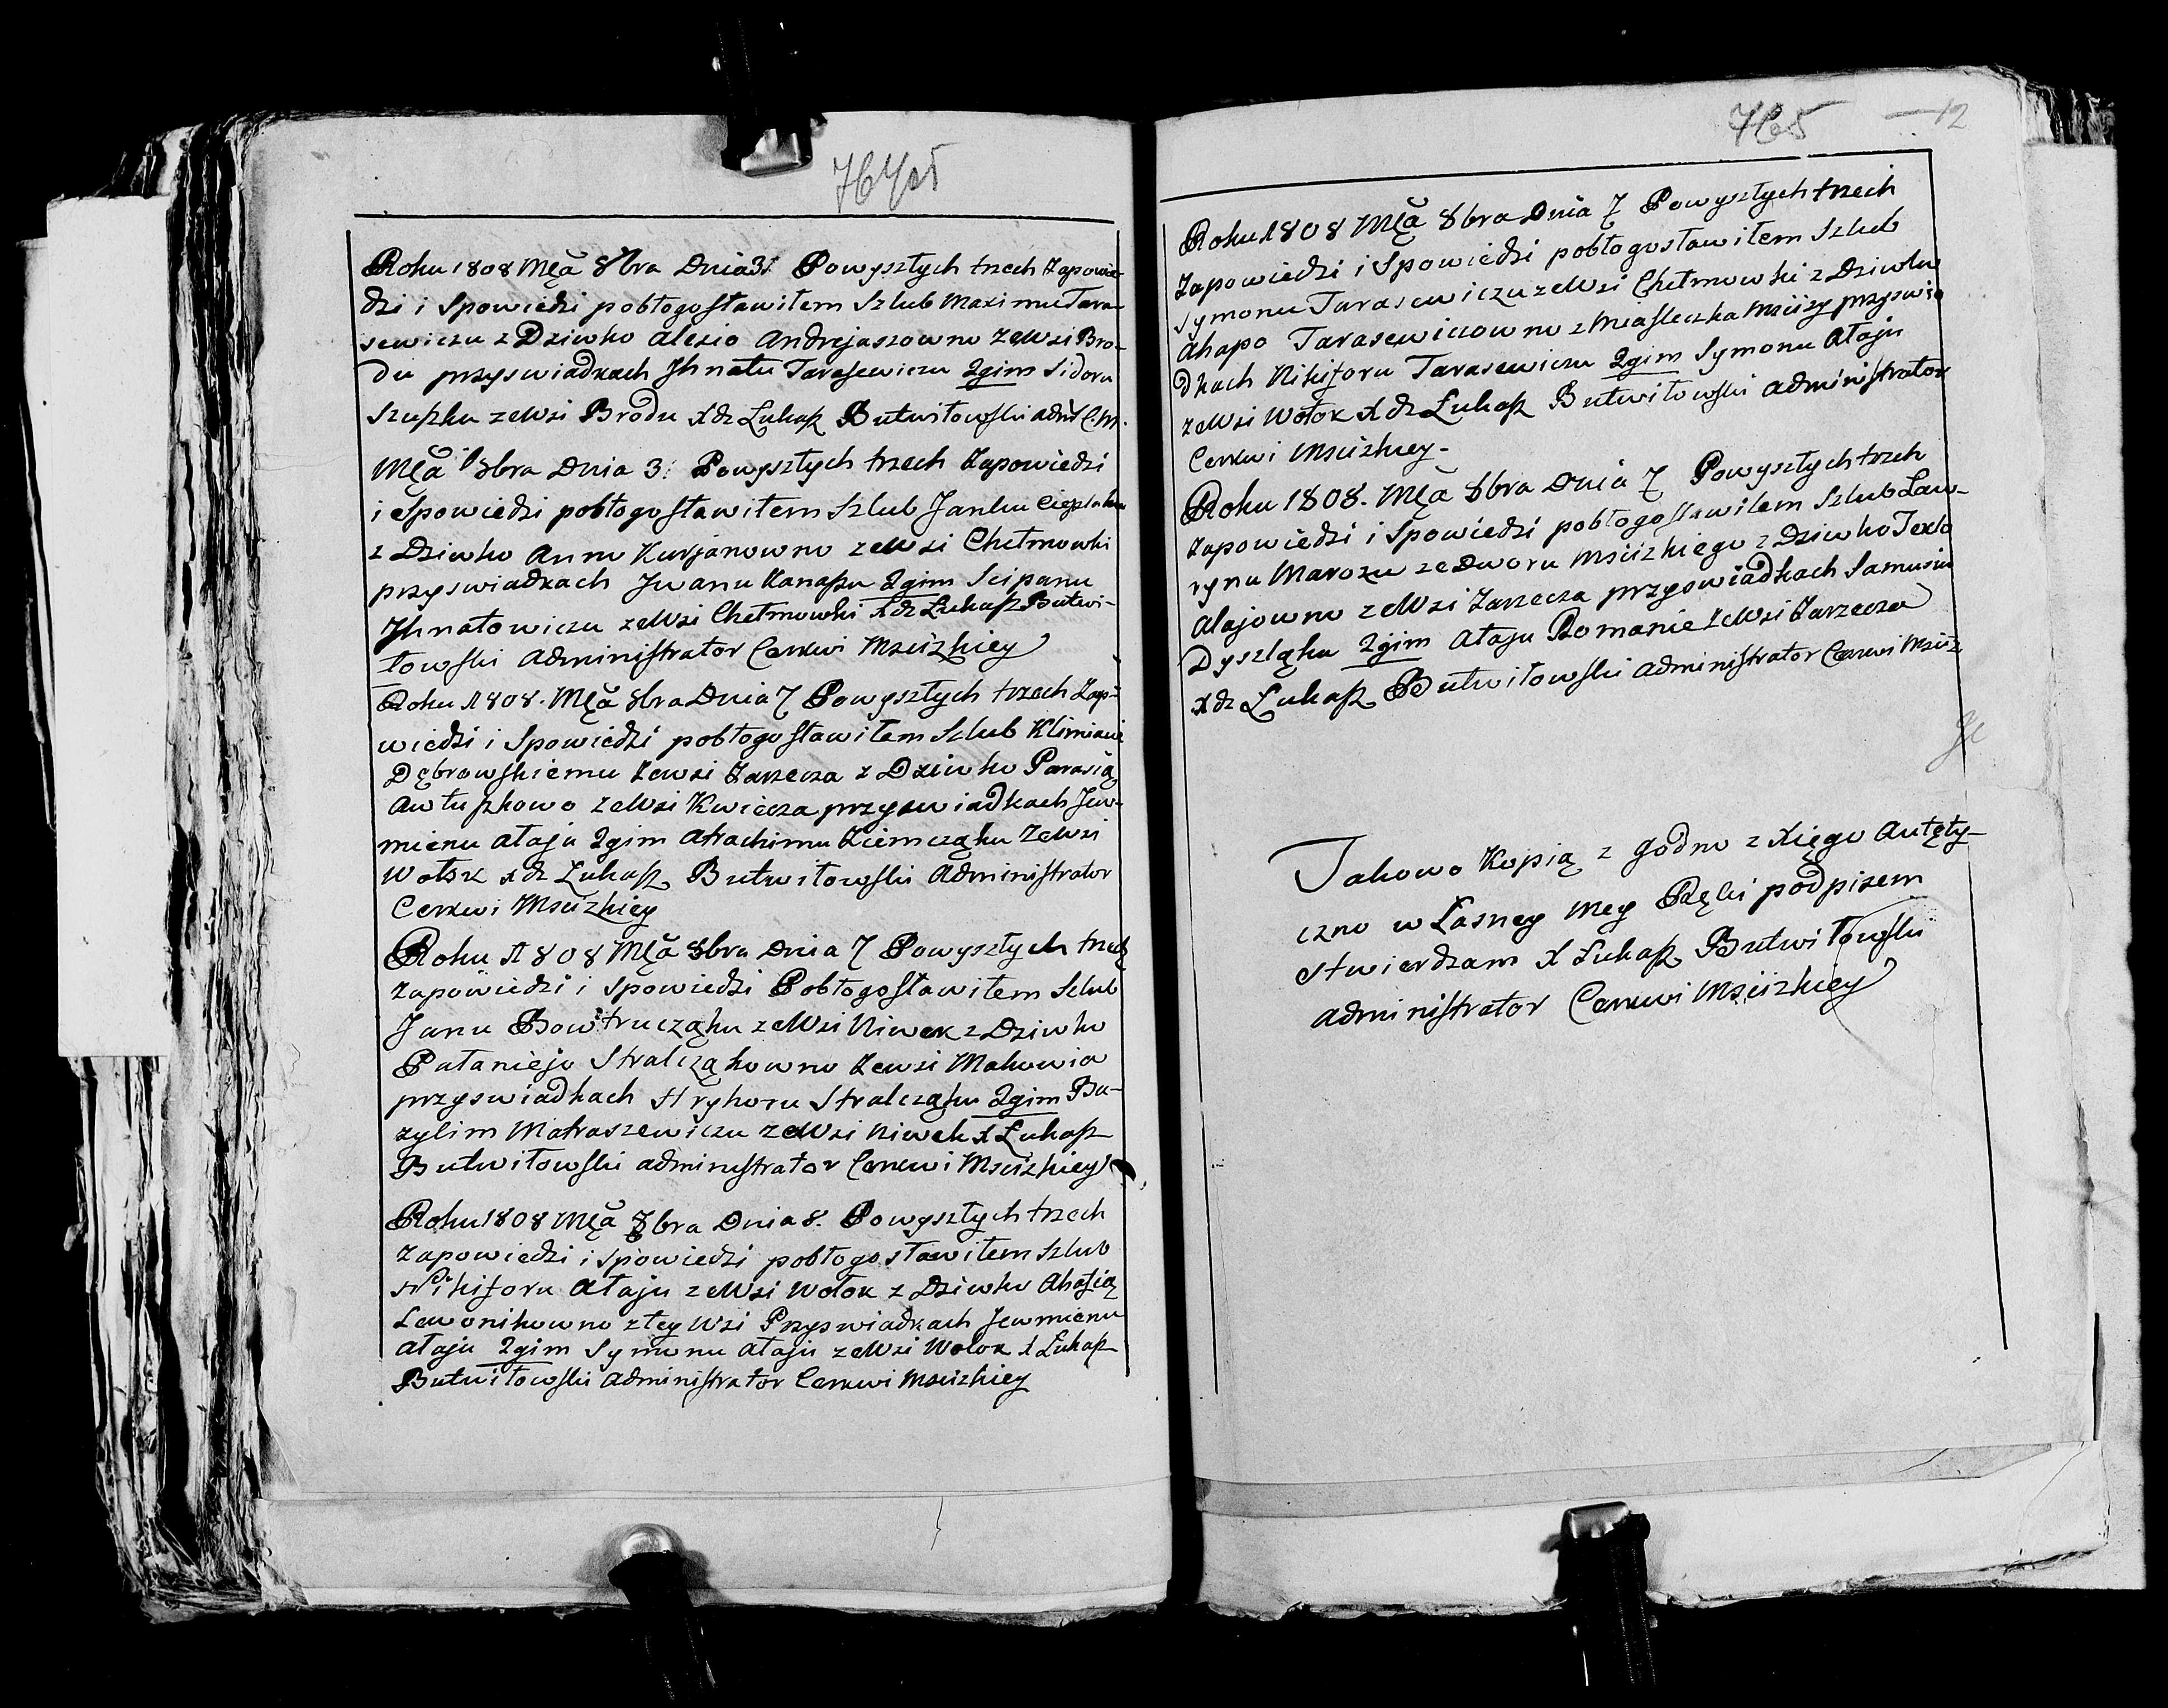 Roku 1808 Mcą 8bra Dnia 3. Powyszłych trzech Zapowie-
dzi i Spowiedzi pobłogosławiłem Szlub Maximu Tara-
sewiczu z Dziwko Alesio Andrejaszowno ze Wsi Bro-
du przyswiadkach Jhnatu Tarasewiczu 2gim Sidoru
Szupku ze Wsi Brodu Xdz Łukasz Butwiłowski admt C. M.
Mcą 8bra Dnia 3. Powyszłych trzech Zapowiedzi
i Spowiedzi pobłogosławiłem Szlub Janku
z Dziwko Anno Kurjanowno ze Wsi Chełmowki
przyswiadkach Jwanu Kanaszu 2gim Scipanu
Jhnatowiczu ze Wsi Chełmowki Xdz Łukasz Butwi-
łowski Administrator Cerkwi Msciżkiey
Roku 1808. Mcą 8bra Dnia 7 Powyszłych trzech Zapo-
wiedzi i Spowiedzi pobłogosławiłem Szlub Klimiane
Dąbrowskiemu Zewsi Zarzecza z Dziwko Parasią
Awtuszkowo ze Wsi Kwiecza przyswiadkach Jew-
mienu Ataju 2gim Atrachimu Ziemcząku ze Wsi
Wołok xdz Łukasz Butwiłowski Administrator
Cerkwi Msciżkiey
Roku 1808 Mcą 8bra Dnia 7 Powyszłych trzech
Zapowiedzi i Spowiedzi Pobłogosławiłem Szlub
Janu Bowtrucząku ze Wsi Niwek z Dziwko
Pałaniejo Stralcząkowno Zewsi Makowia
przyswiadkach Hryhoru Stralcząku 2gim Ba-
zylim Matraszewiczu ze Wsi Niwek X Łukasz
Butwiłowski administrator Cerkwi Msciżkiey
Roku 1808 Mcą 8bra Dnia 8. Powyszłych trzech
Zapowiedzi i Spowiedzi pobłogosławiłem Szlub
Nikiforu Ataju ze Wsi Wołok z Dziwko Ahasią
Lewonikowno ztey Wsi Przyswiadkach Jewmienu
Ataju 2gim Symonu Ataju ze Wsi Wołok X Łukasz
Butwiłowski Administrator Cerkwi Msciżkiey
765 12
Roku 1808 Mcą 8bra Dnia 7 Powyszłych trzech
Zapowiedzi i Spowiedzi pobłogosławiłem Szlub
Symonu Tarasewiczu ze Wsi Chełmowki z Dziwko
Ahapo Tarasewiczowno z Miasteczka Msciży przyswia
dkach Nikiforu Tarasewiczu 2gim Symonu Ataju
ze Wsi Wołok Xdz Łukasz Butwiłowski administrator
Cerkwi Msciżkiey.
Roku 1808. Mcą 8bra Dnia 7 Powyszłych trzech
Zapowiedzi i Spowiedzi pobłogosławiłem Szlub Ław-
rynu Marozu ze Dworu Msciżkiego z Dziwko Texlo
Atajowno ze Wsi Zarzecza przyswiadkach Samusiu
Dyszląku 2gim Ataju Romanie ze Wsi Zarzecza
Xdz Łukasz Butwiłowski administrator Cerkwi Msciż
Takowo Kopią z godno z Xięgo Autęty-
czno w Łasney Mey Ręki podpisem
Stwierdzam X Łukasz Butwiłowski
administrator Cerkwi Msciżkiey